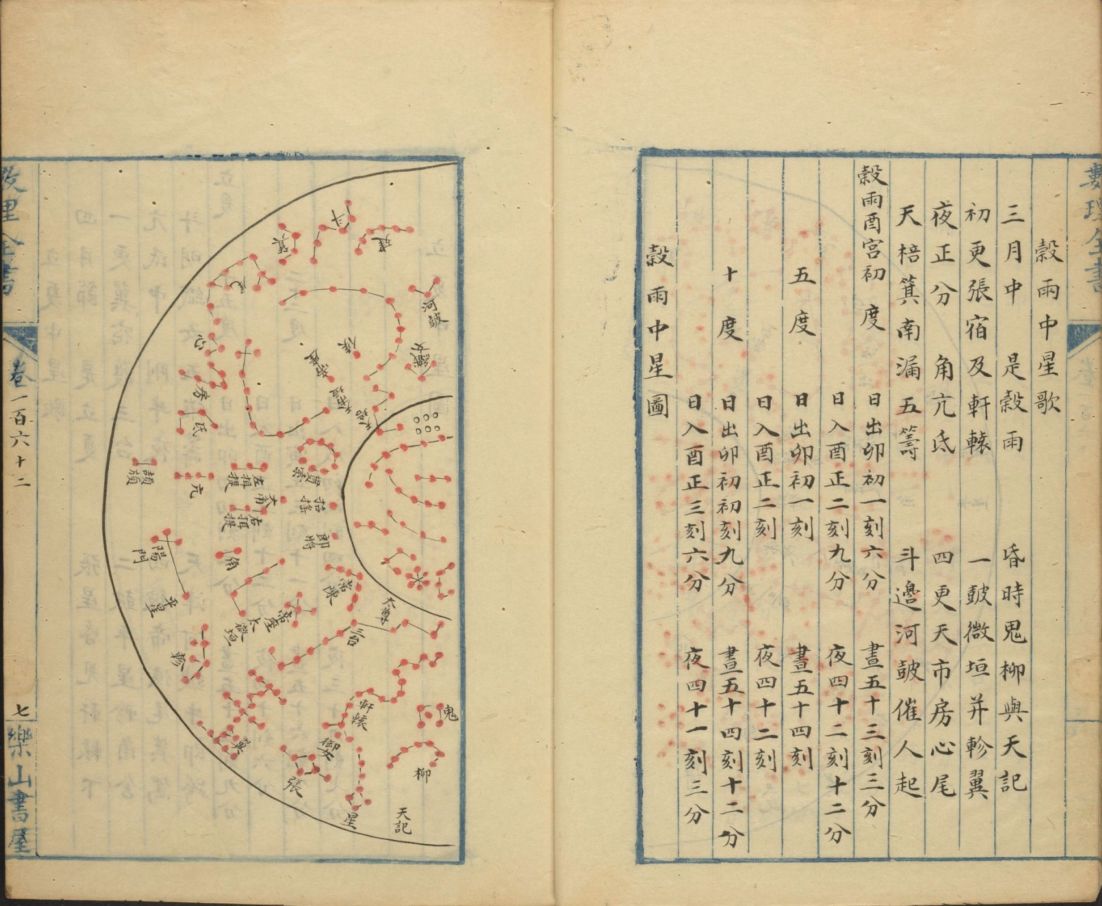 數理全書
穀雨中星歌
三月中 是穀雨 昏時鬼柳與天記
初更張宿及軒轅 一鼓微垣并軫翼
夜正分 角亢氐 四更天市房心尾
天棓箕南漏五籌 斗邊河鼓催人起
穀雨酉宮初度 日出卯初一刻六分 晝五十三刻三分
日入酉正二刻九分 夜四十二刻十二分
五度 日出卯初一刻 晝五十四刻
日入酉正二刻 夜四十二刻
十度 日出卯初初刻九分 晝五十四刻十二分
日入酉正三刻六分 夜四十一刻三分
穀雨中星圖
斗
建
箕
尾
心
房
氐
亢
河鼓
候
頡頏
左攝提
大角
右攝提
招搖
郎將
陽門
平星
角
常陳
太微垣
帝座
三台
太尊
軫
翼
軒轅
御女
張
星
鬼
柳
天記
數理全書
卷一百六十二
七
樂山書屋